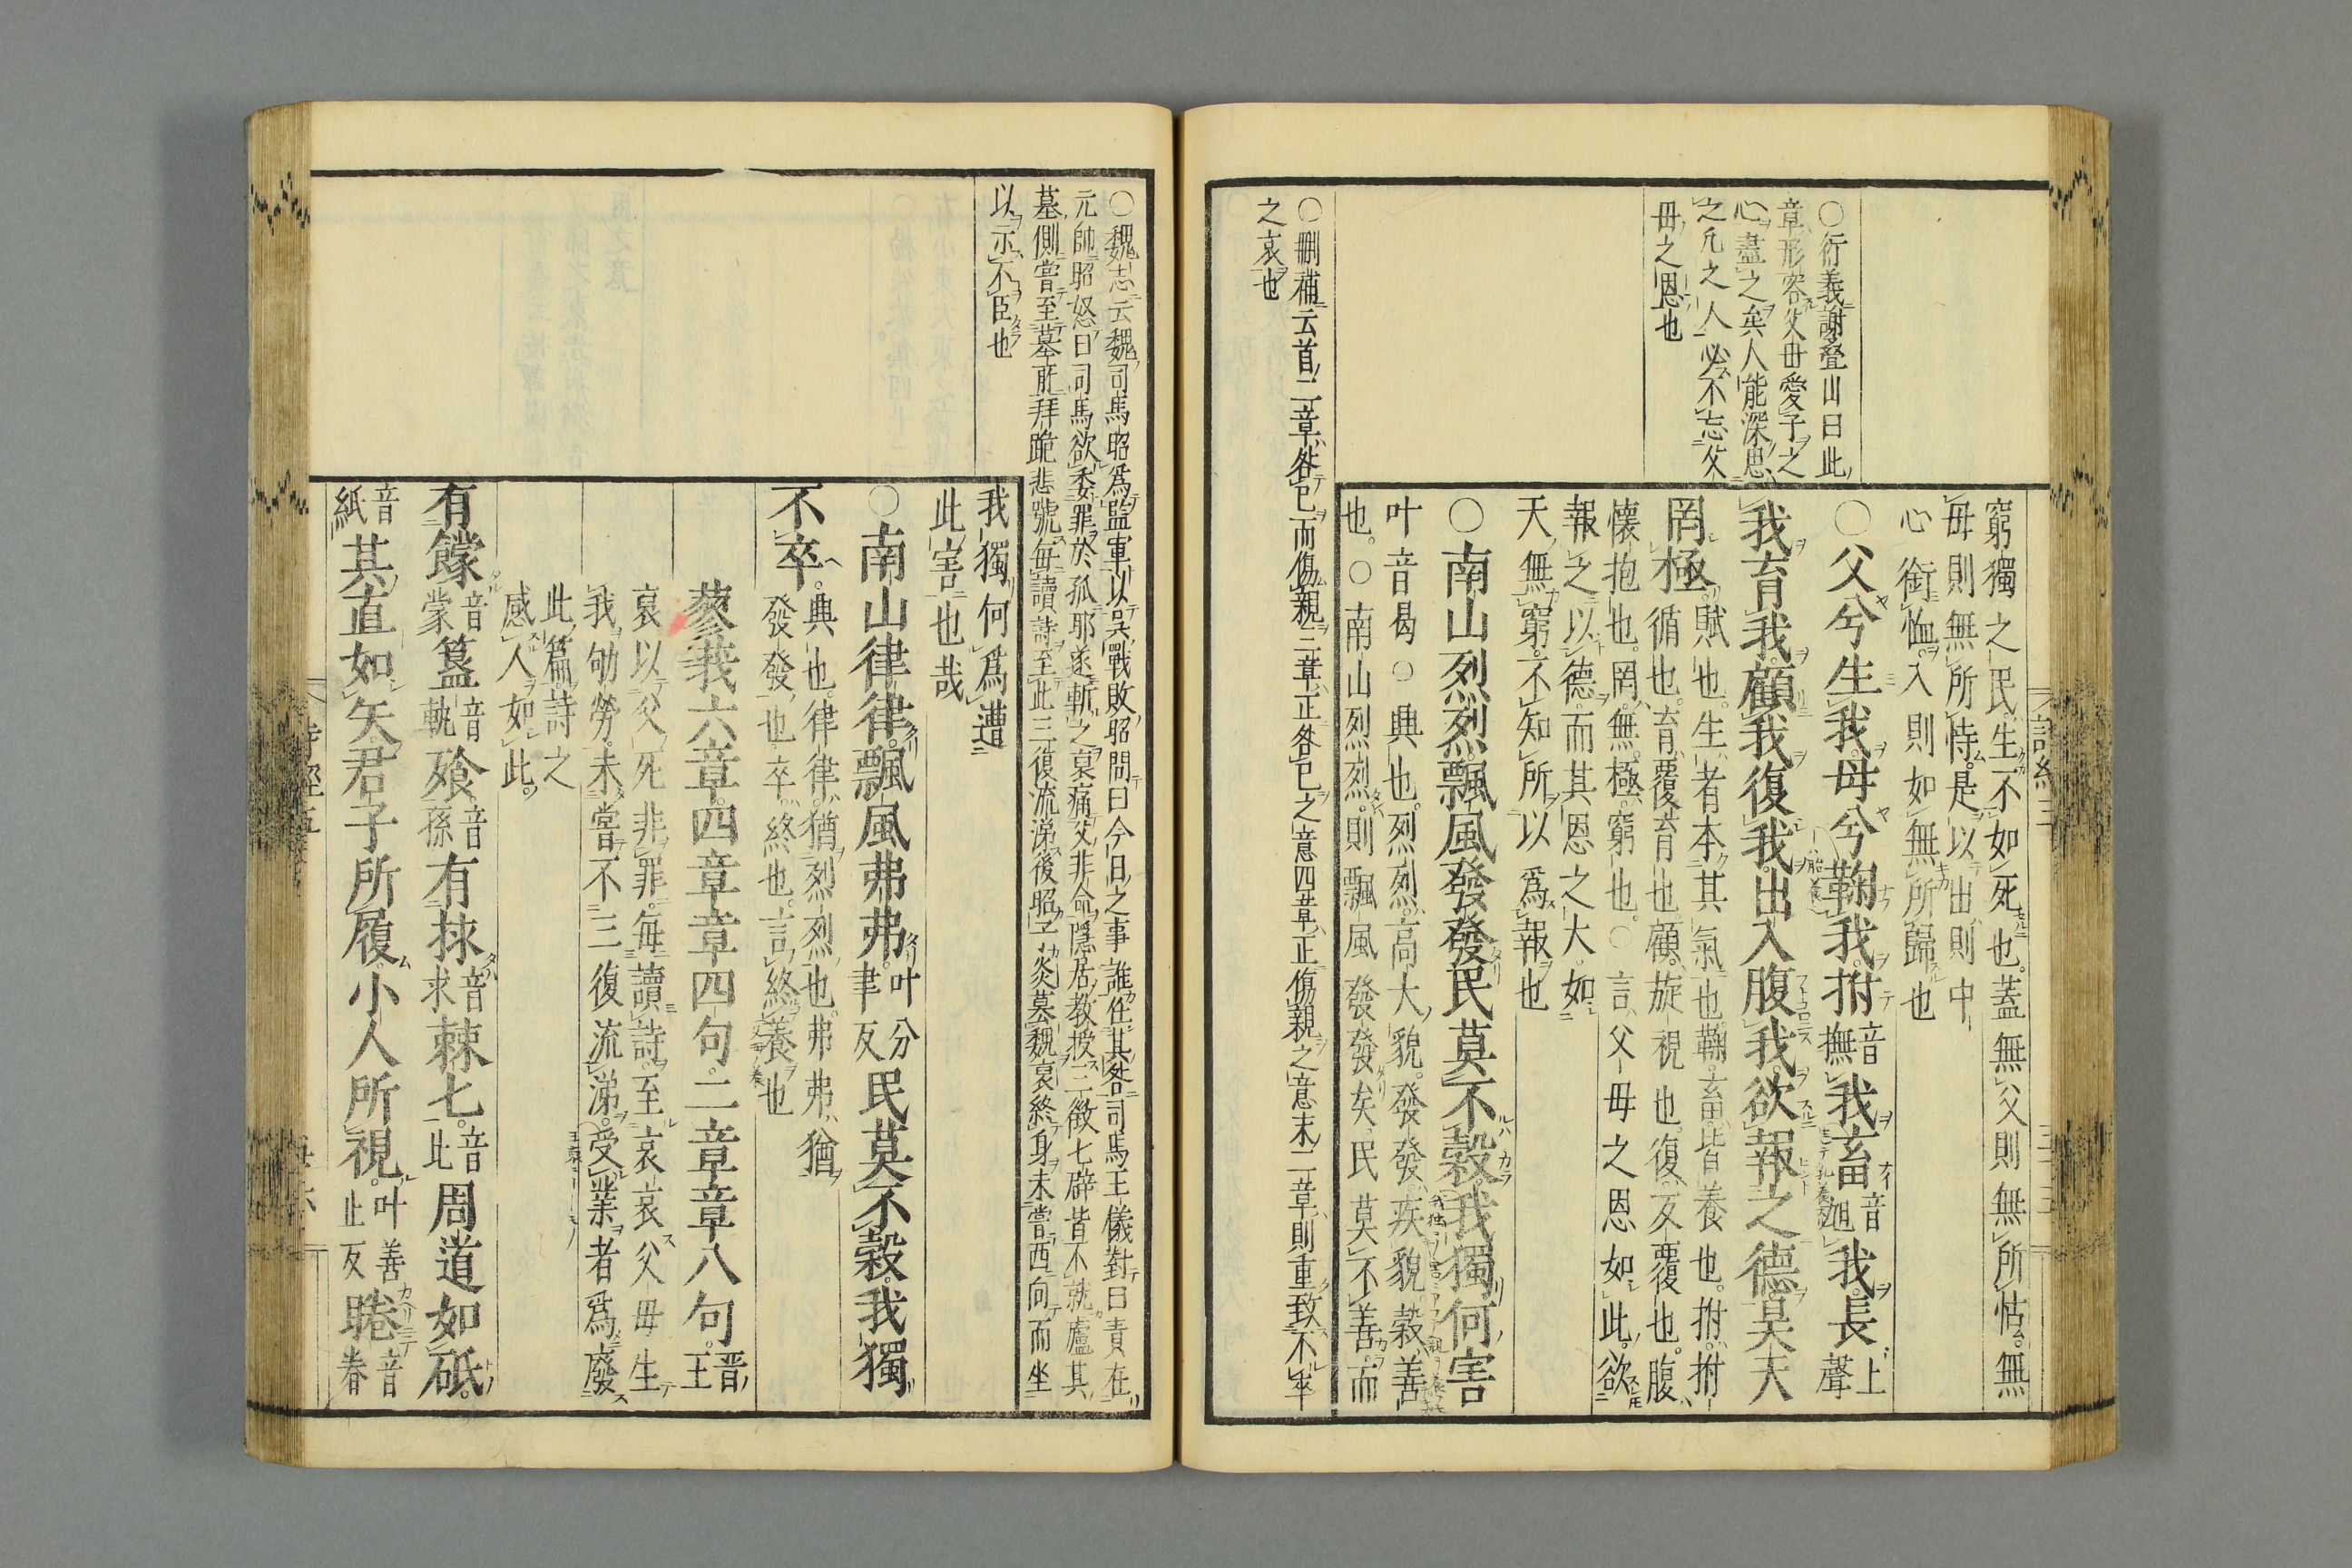 窮獨之民生不如死也。蓋無父則無所怙。無
母則無所恃。是以出則中
心銜恤。入則如無所歸也
○衍義謝疊山曰此
章形容父母愛子之
心盡之矣人能深思
之凡之人必不忘父
母之恩也
○父兮生我。母兮鞠我。拊音撫我畜音旭我。長上聲
我育我。顧我復我出入腹我。欲報之德。昊天
罔極。賦也。生者本其氣也。鞠。畜。皆養也。拊。拊
循也。育。覆育也。顧。旋視也。復。反覆也。腹。
懷抱也。罔。無。極。窮也。○言父母之恩如此。欲
報之以德。而其恩之大。如
天無窮。不知所以爲報也
○南山烈烈。飄風發發。民莫不穀。我獨何害
叶音曷○興也。烈烈。高大貌。發發。疾貌。穀。善
也。○南山烈烈。則飄風發發矣。民莫不善。而
○刪補云首二章咎已而傷親三章正咎已之意四章正傷親之意末二章則重致不卒
之哀也
○魏志云魏司馬昭爲監軍以吳戰敗昭問曰今日之事誰任其咎司馬王儀對曰責在
元帥昭怒曰司馬欲委罪於孤耶遂斬之裒痛父非命隱居教授三徵七辟皆不就廬其
墓側嘗至墓所拜跪悲號每讀詩至此三復流涕後昭子炎纂魏裒終身未嘗西向而坐
以示不臣也
我獨何爲遭
此害也哉
○南山律律。飄風弗弗。叶分聿反民莫不穀。我獨
不卒。興也。律律。猶烈烈也。弗弗。猶
發發也。卒。終也。言終養也
蓼莪六章。四章章四句。二章章八句。晉王
哀以父死非罪。每讀詩。至哀哀父母生
我劬勞。未嘗不三復流涕。受業者爲廢
此篇。詩之
感人如此。
有饛音蒙簋音軌飧。音孫有捄音求棘匕。音比周道如砥。
音紙其直如矢。君子所履。小人所視。叶善止反睠音眷